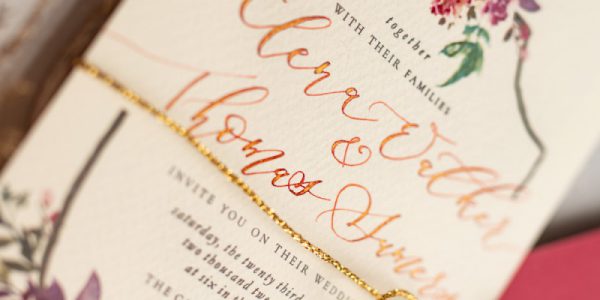 together
WITH THEIR FAMILIES
Elena Walker
&
Thomas
INVITE YOU ON THEIR
saturday, the twenty third
two thousand twenty
at six in the
THE